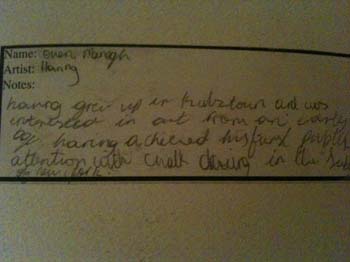 Name: Owen
Artist: Haring
Notes:
haring grew up in Kutztown and was
interested in art from an early
age. haring achieved his first public
attention with chalk drawing in the Sub
of New York.